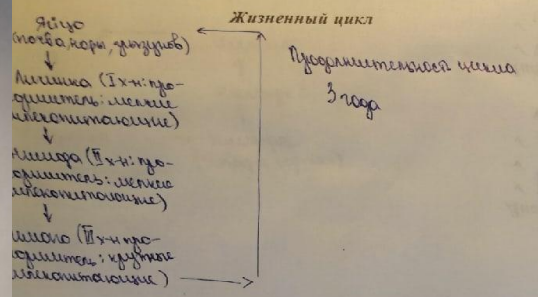 Жизненный цикл
Яйцо
(почва, норы, грызунов)
Личинка (I х-н: про-
кормитель: мелкие
млекопитающие)
Нимфа (II х-н: про-
кормитель: мелкие
млекопитающие)
Имаго (III х-н про-
кормитель: крупные
млекопитающие)
Продолжительность цикла
3 года